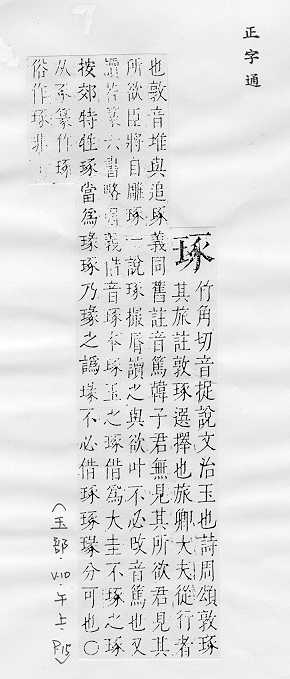 正字通
琢
竹角切音捉說文治玉也詩周頌敦琢
其旅註敦琢選擇也旅卿大夫從行者
也敦音堆與追琢義同舊註音篤韓子君無見其所欲君見其
所欲臣將自雕琢一說琢撮脣讀之與欲叶不必攺音篤也又
六書略 義 音琢 琢玉之琢借爲大圭不琢之琢
按郊特牲琢當爲瑑琢乃瑑之譌 不必借琢琢瑑分可也○
从豖篆作琢
俗作琢非
(玉部·V10·午上·P15)